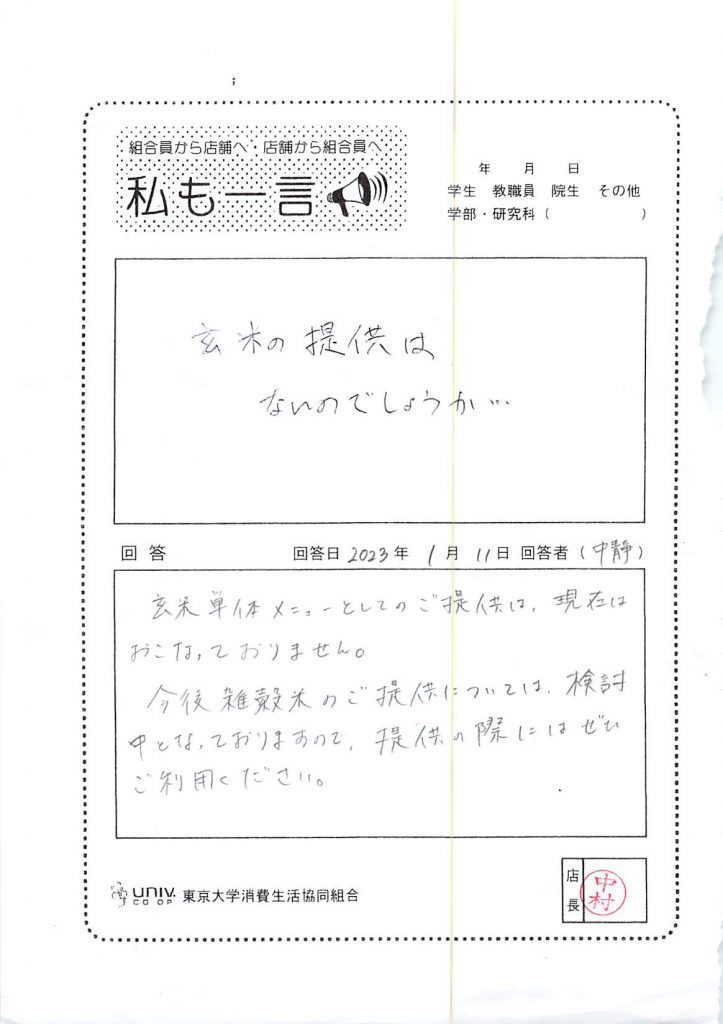 組合員から店舗へ・店舗から組合員へ
私も一言
年 月 日
学生 教職員 院生 その他
学部・研究科( )
玄米の提供は
ないのでしょうか…
回答 回答日 2023年 1月 11日 回答者(中静)
玄米単体メニューとしてのご提供は、現在は
おこなっておりません。
今後雑穀米のご提供については、検討
中となっておりますので、提供の際にはぜひ
ご利用ください。
UNIV.
CO-OP
東京大学消費生活協同組合
店長
中村